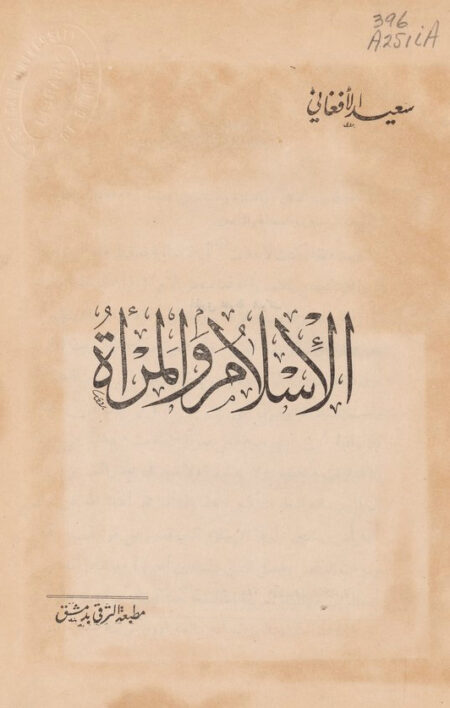 396
A251iA
سعيد الأفغاني
الإسلام والمرأة
مطبعة الترقي بدمشق